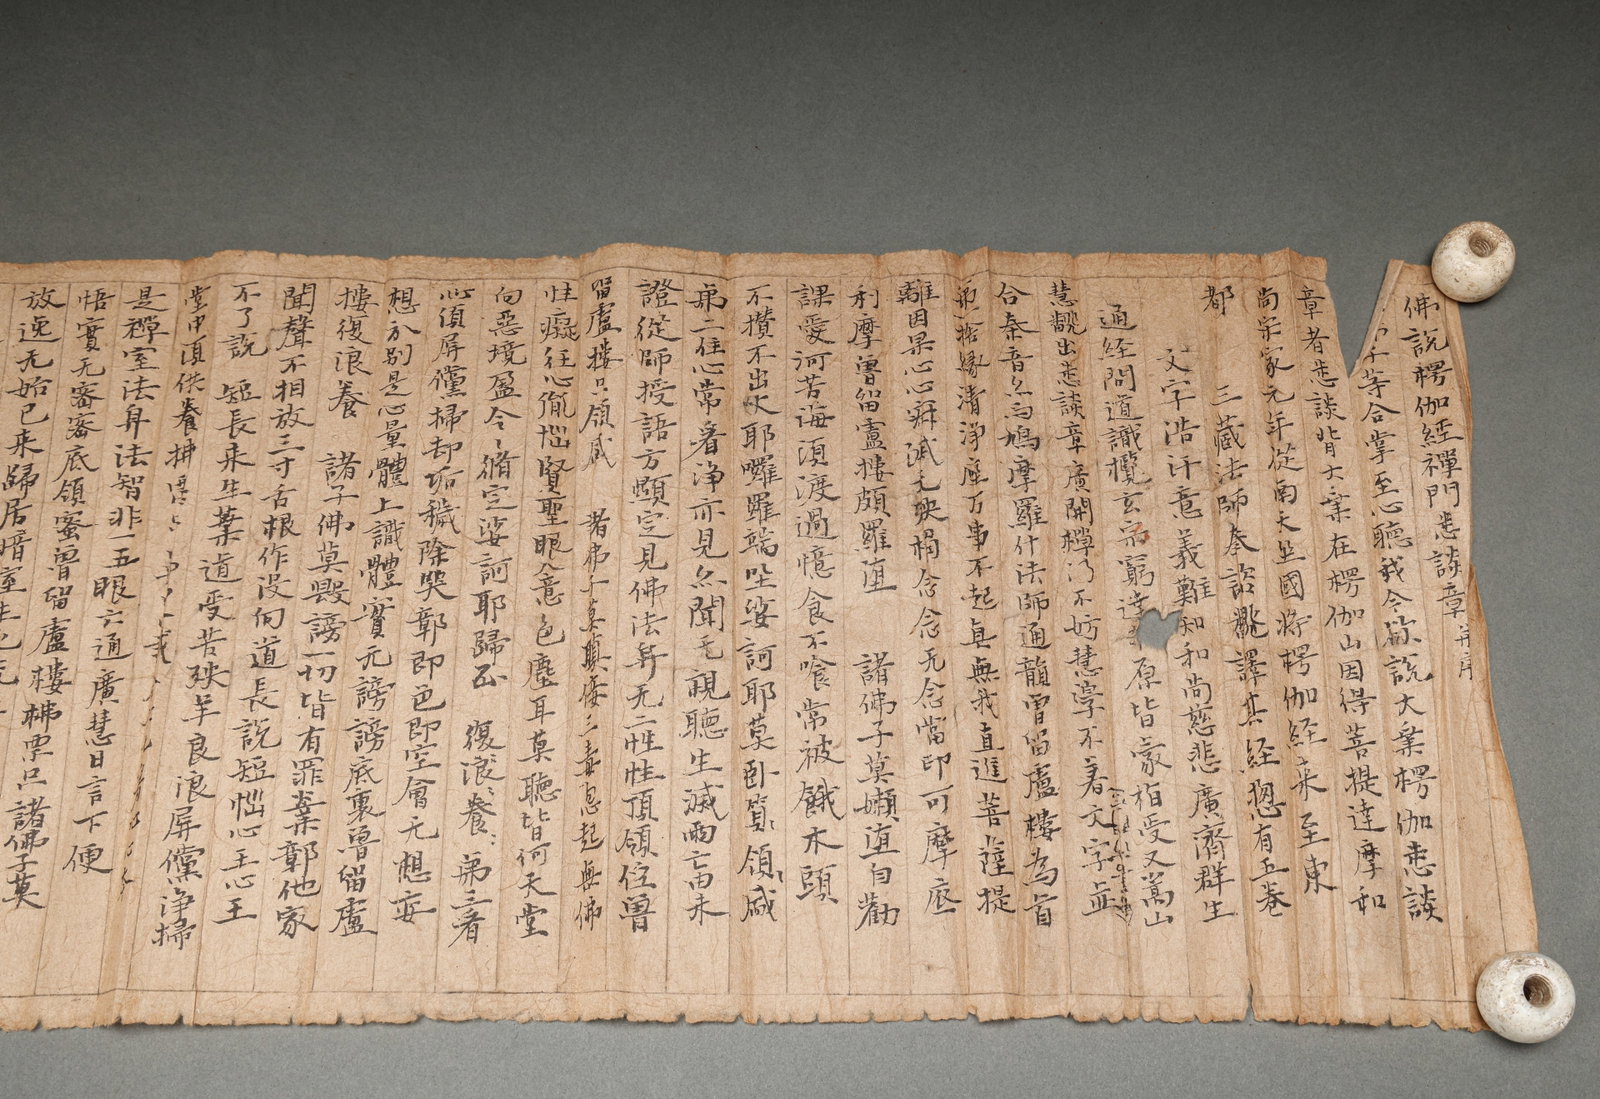 佛說楞伽經禪門悉談章并序
諸佛子等合掌至心聽我今欲說大乗楞伽悉談
章者悉談背大乗在楞伽山因得菩提達摩和
尚宋家元年從南天竺國將楞伽経来至東
都　三藏法師奉諮翻譯其経揔有五巻
文字浩汗意義難知和尚慈悲廣濟群生
通経問道識攬玄宗窮達本原皆蒙指受又嵩山
慧翻出悉談章廣開禪門不妨慧學不著文字並
合秦音亦与鳩摩羅什法師通韻魯留盧樓為首
第一捨縁清淨座万事不起真無我直進菩薩提
離因果心心寂滅无殃禍念念无念當印可摩底
利摩魯留盧樓頗羅墮　諸佛子莫嬾墮自勸
課愛河苦海須渡過憶食不喰常被餓木頭
不攢不出火耶囉羅端坐娑訶耶莫卧筫領感
弟二住心常看淨亦見亦聞无視聽生滅兩亡由未
證從師授語方顯定見佛法身无二性性頂領位魯
留盧樓只領感　諸弟子莫瞋倭三毒忽起無佛
性癡狂心亂惱賢聖眼意色塵耳莫聽皆何天堂
向惡境盈令令脩定娑訶耶歸正　復浪浪養養弟三看
心須屏儻掃却垢穢除災鄣即色即空會无想妄
想分别是心量體上識體實无謗謗底裏魯留盧
樓復浪養　諸子佛莫毀謗一切皆有罪業鄣他家
聞聲不相放三寸舌根作没向道長說短惱心王心王
不了説　短長来生業道受苦殃羊良浪屏儻淨掃
堂中須供養
是禪室法身法智非一五眼六通廣慧日言下便
悟實无審審底領蜜魯留盧樓怫栗只諸佛子莫
放逸无始已来歸居暗室生已